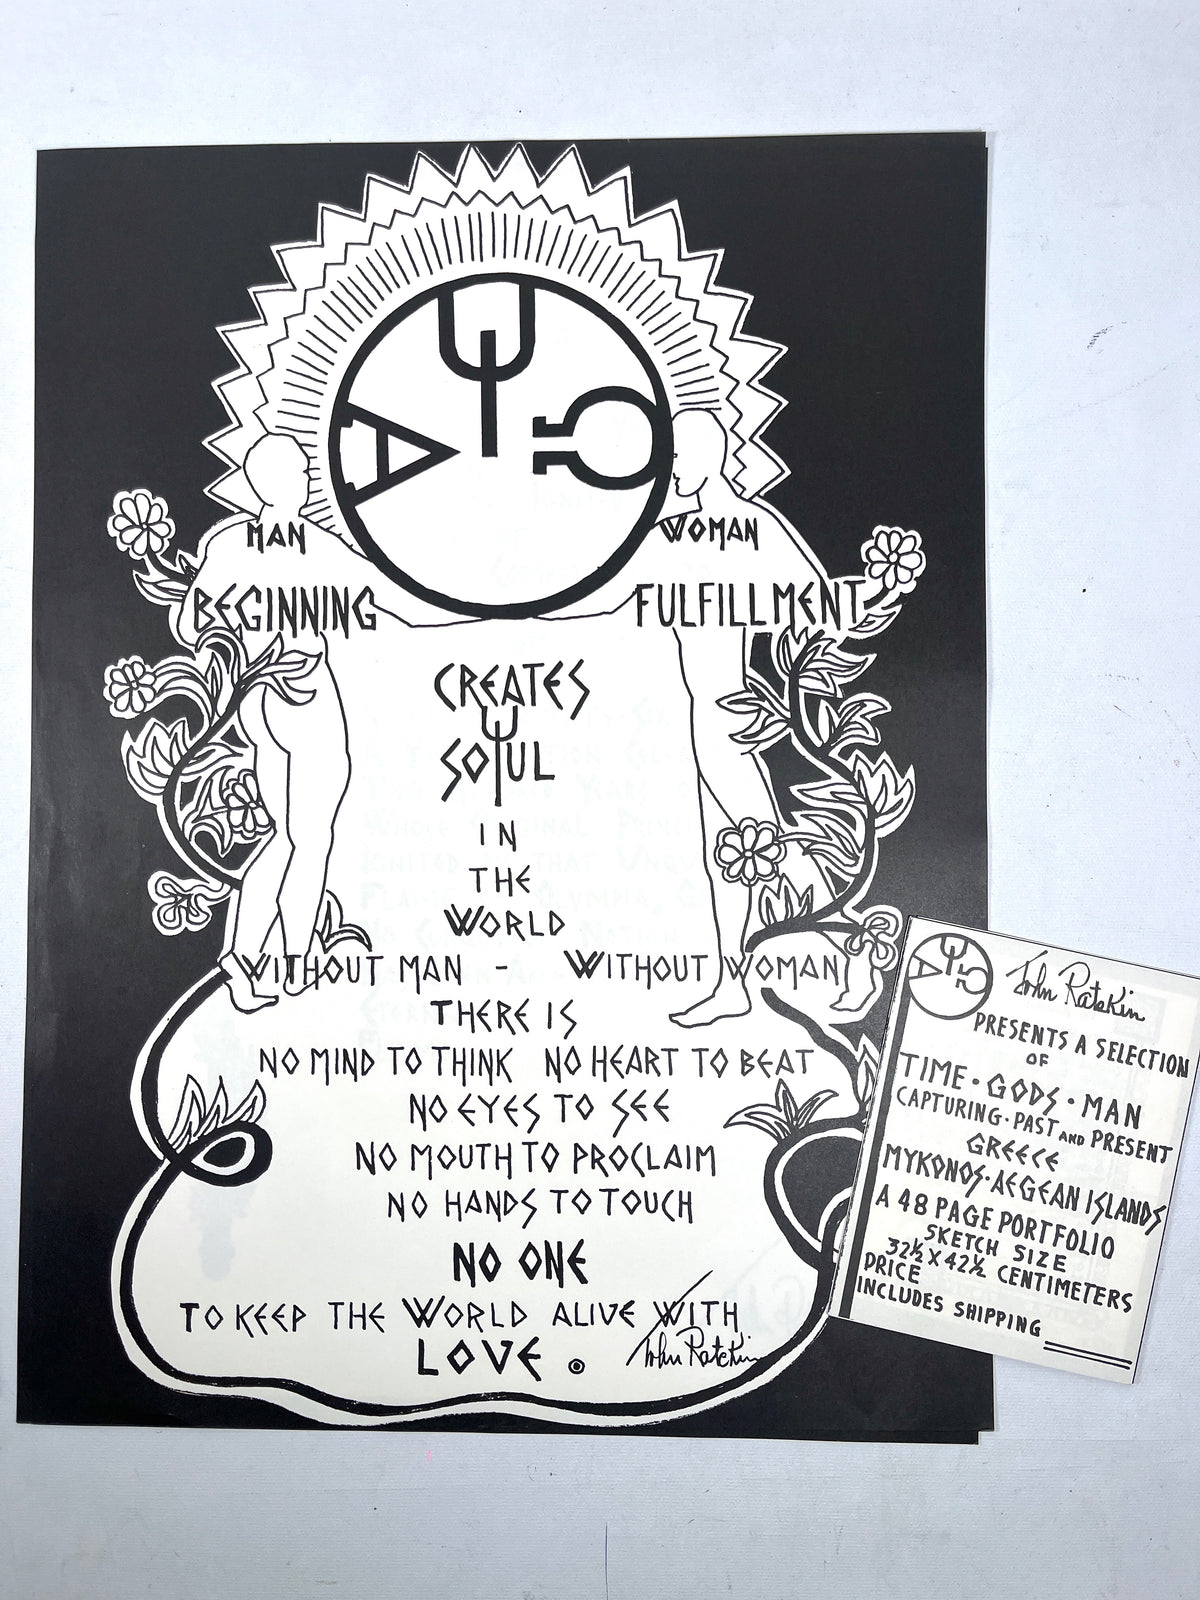 Α Ψ Ω
MAN
WOMAN
BEGINNING
FULFILLMENT
CREATES
Ψ
SOUL
IN
THE
WORLD
WITHOUT MAN - WITHOUT WOMAN
THERE IS
NO MIND TO THINK NO HEART TO BEAT
NO EYES TO SEE
NO MOUTH TO PROCLAIM
NO HANDS TO TOUCH
NO ONE
TO KEEP THE WORLD ALIVE WITH
LOVE.
John Ratekin
Α Ψ Ω
John Ratekin
PRESENTS A SELECTION
OF
TIME · GODS · MAN
CAPTURING · PAST AND PRESENT
GREECE
MYKONOS · AEGEAN ISLANDS
A 48 PAGE PORTFOLIO
SKETCH SIZE
32½ X 42½ CENTIMETERS
PRICE
INCLUDES SHIPPING